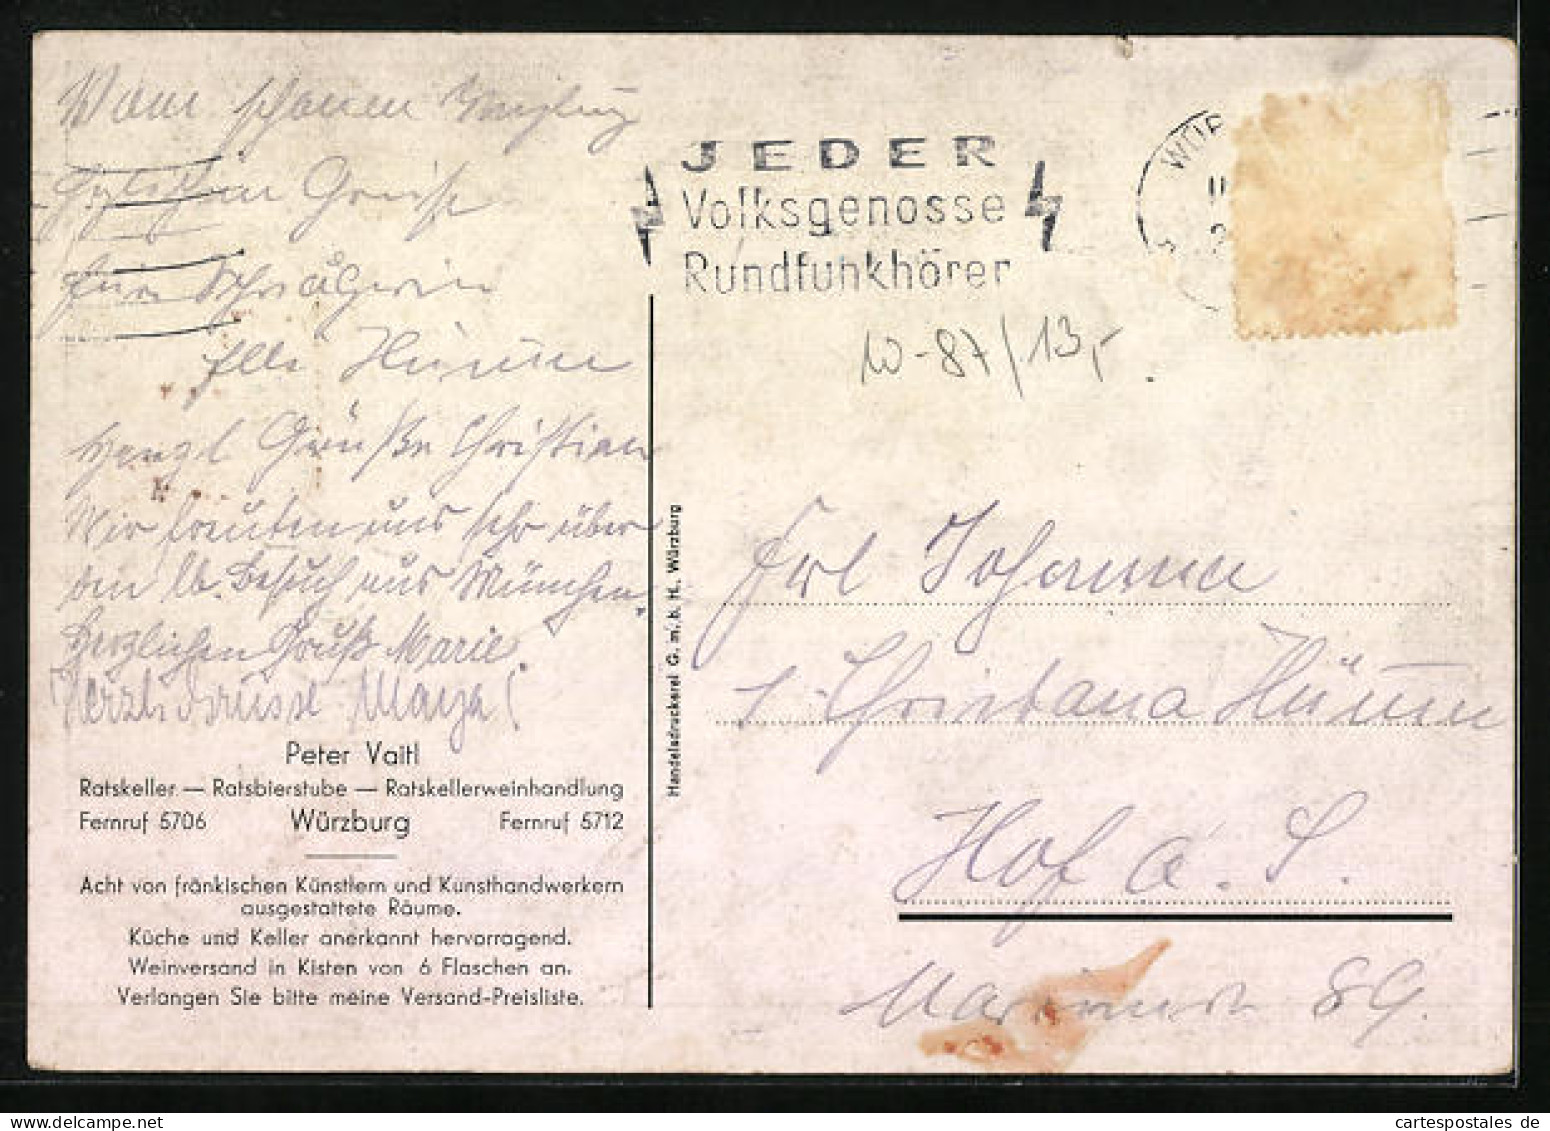 Vom schönen
Grüße
Herzl Grüße Christian
Wir freuten uns sehr über
den lb. Besuch aus München.
Herzlichen Gruß Marie.
Herzl. Grüsse
Peter Vaitl
Ratskeller — Ratsbierstube — Ratskellerweinhandlung
Fernruf 5706 Würzburg Fernruf 5712
Acht von fränkischen Künstlern und Kunsthandwerkern
ausgestattete Räume.
Küche und Keller anerkannt hervorragend.
Weinversand in Kisten von 6 Flaschen an.
Verlangen Sie bitte meine Versand-Preisliste.
Handelsdruckerei G. m. b. H., Würzburg
JEDER
Volksgenosse
Rundfunkhörer
WÜR
10-87/13,-
Frl Johanna
Hof a. S.
89.
cartespostales de